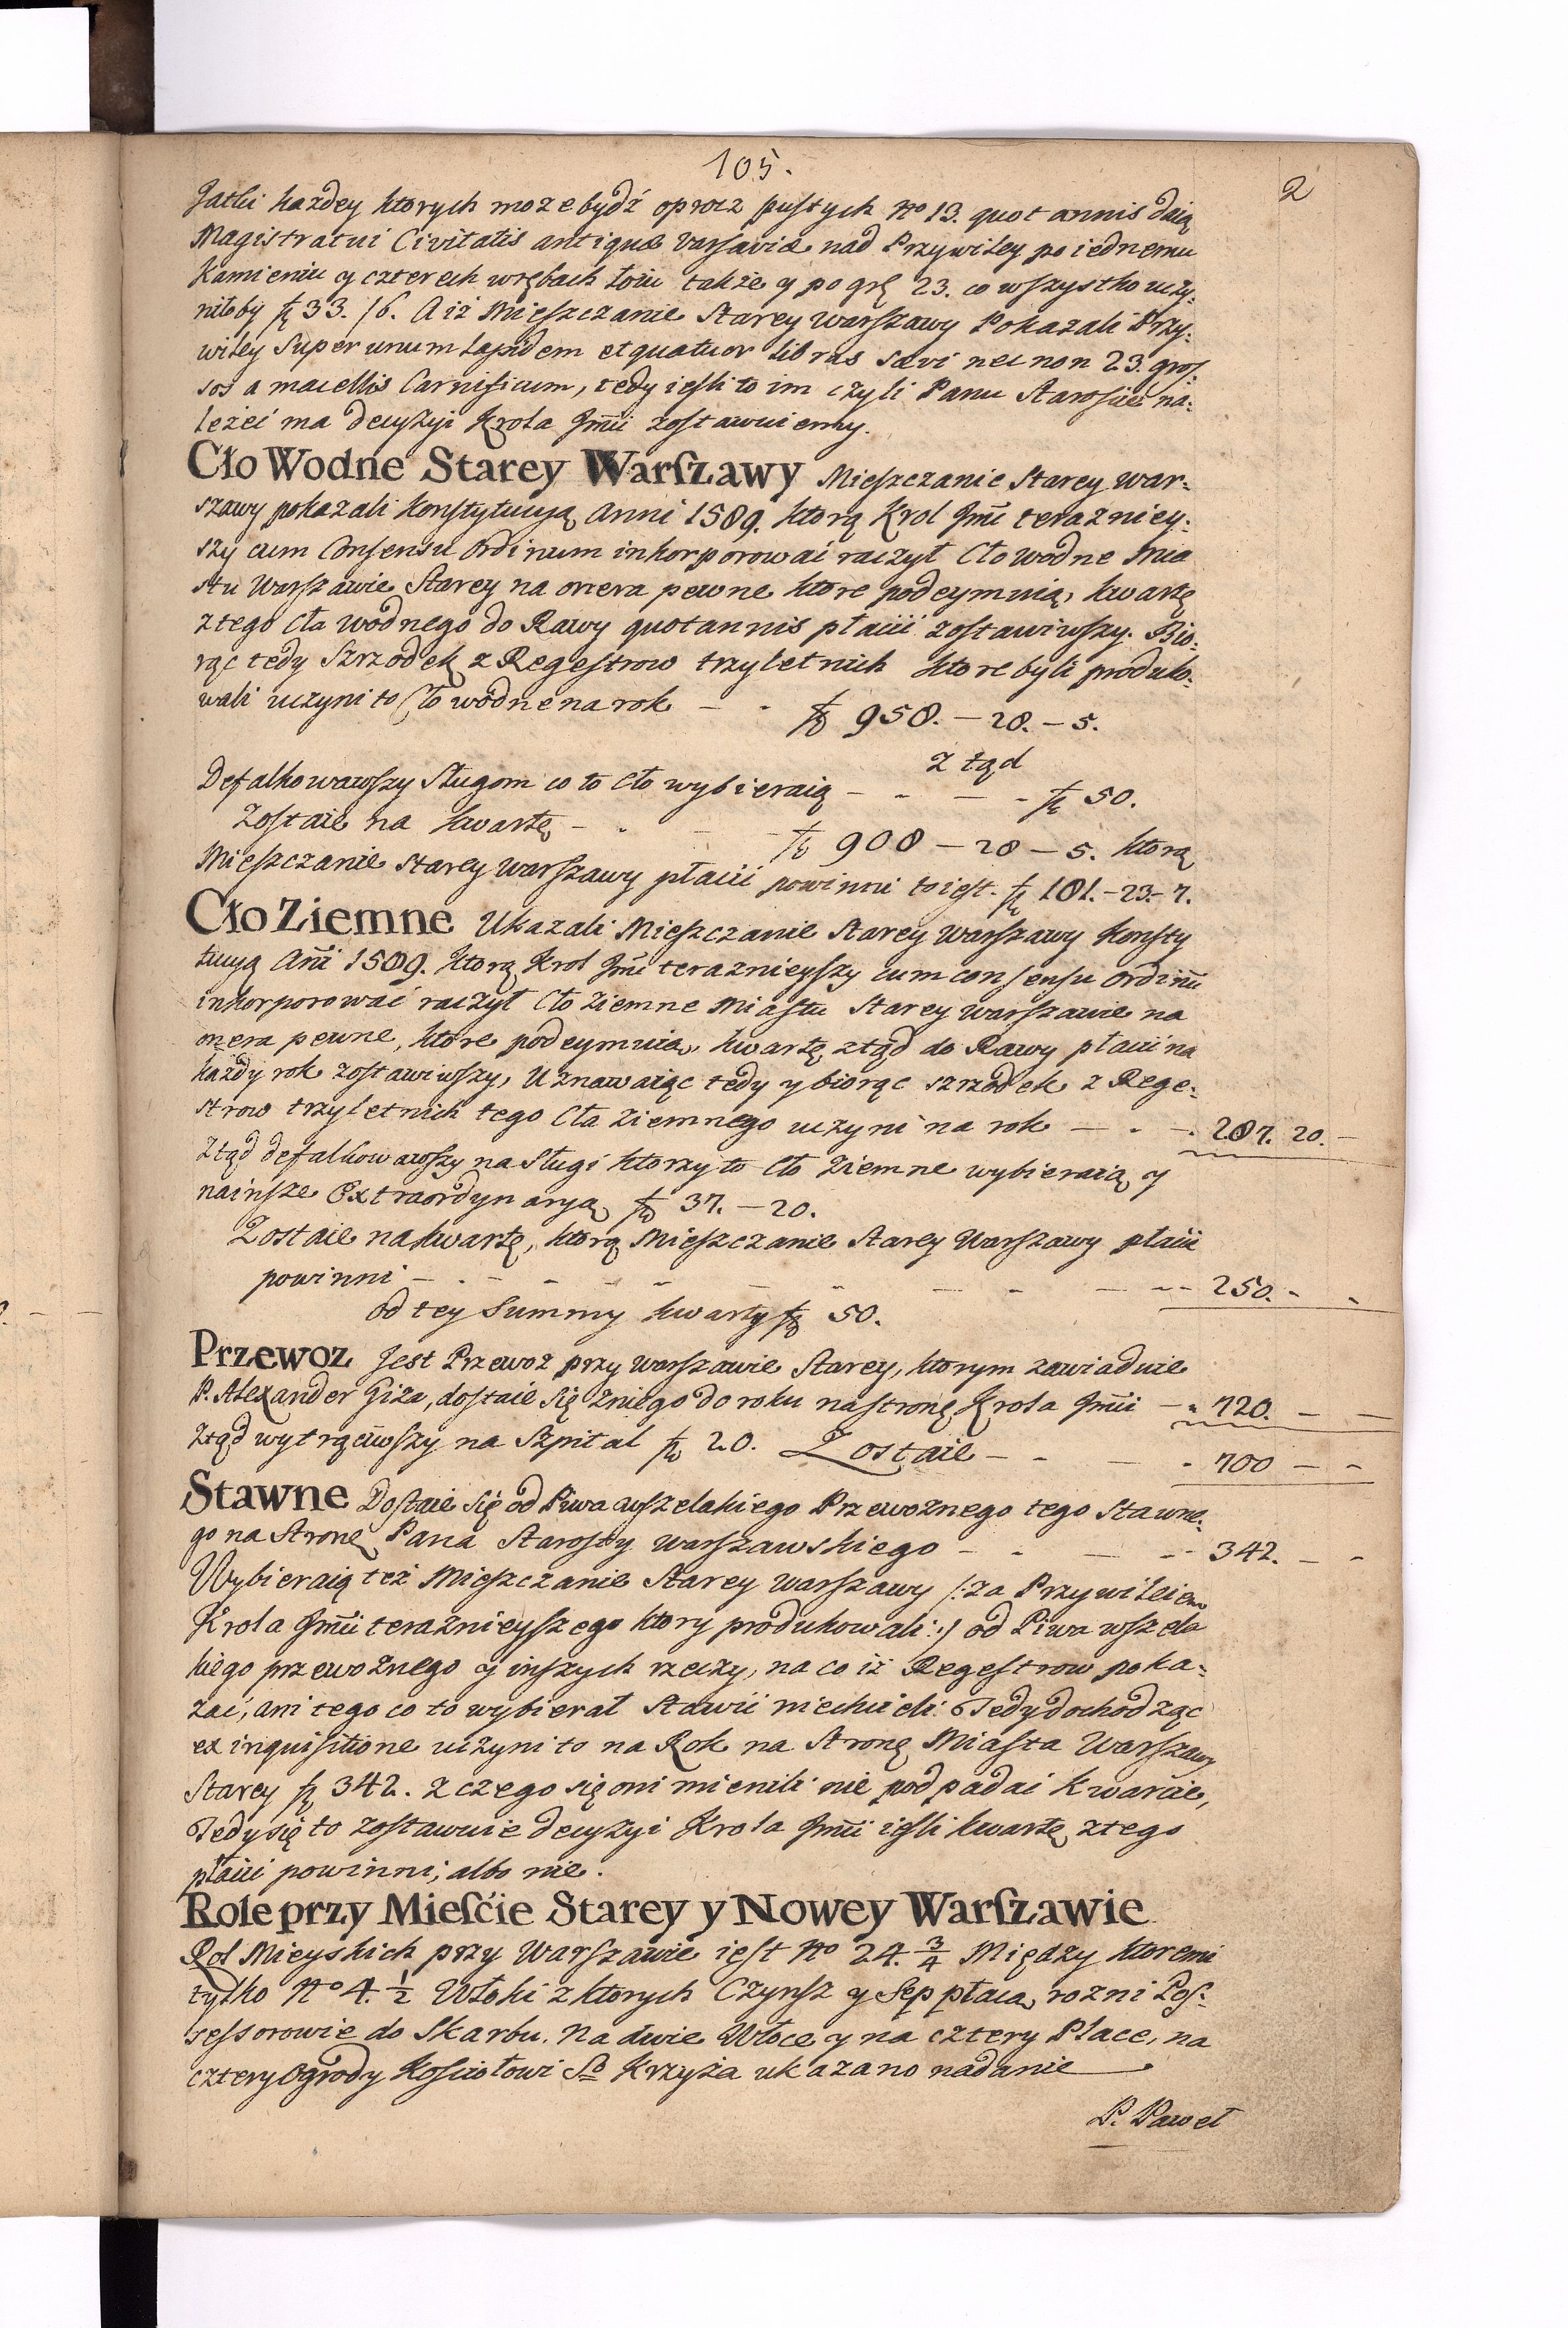 105.
2
Jatki kazdey ktorych moze bydź oprocz pustych No 13. quot annis daią
Magistratui Civitatis antiquæ Varsaviæ nad Przywiley po iednemu
Kamieniu y czterech wrębach łoiu także y po grę 23. co wszystko uczy-
niłoby fl 33. 16. A iż Mieszczanie Starey Warszawy Pokazali Przy-
wiley Super unum Lapidem et quatuor Libras sævi nec non 23. gros-
sos a macellis Carnificum, tedy iesli to im czyli Panu Staroście na-
leżeć ma decyzyi Krola Jmci zostawuiemy.
Cło Wodne Starey Warszawy Mieszczanie Starey War-
szawy pokazali Konstytucyą Anni 1589. ktorą Krol Jmć terazniey-
szy cum Consensu Ordinum inkorporować raczył Cło wodne Mia
stu Warszawie Starey na onera pewne ktore podeymuią, kwartę
z tego Cła wodnego do Rawy quotannis płacić zostawiwszy. Bio-
rąc tedy Szrzodek z Regestrow trzyletnich ktore byli produko-
wali uczyni to Cło wodne na rok — - fl 958. — 28. — 5.
Ztąd
Defalkowawszy Sługom co to Cło wybieraią - - — - fl 50.
Zostaie na kwartę - - — - fl 908 — 28 — 5. ktorą
Mieszczanie Starey Warszawy płacić powinni to iest. fl 181. - 23. - 7.
Cło Ziemne Ukazali Mieszczanie Starey Warszawy Konsty
tucyą Anni 1589. ktorą Krol Jmć teraznieyszy cum consensu Ordinū
inkorporować raczył Cło ziemne Miastu Starey Warszawie na
onera pewne, ktore podeymuią, kwartę ztąd do Rawy płacić na
każdy rok zostawiwszy, Uznawaiąc tedy y biorąc szrzodek z Rege-
strow trzyletnich tego Cła ziemnego uczyni na rok — - -. 287. 20. —
Ztąd defalkowawszy na Sługi ktorzy to Cło Ziemne wybieraią y
na insze Extraordynaryą fl 37. — 20.
Zostaie na kwartę, ktorą Mieszczanie Starey Warszawy płacić
powinni — - - - - - — - — - - 250. - -
od tey Summy kwarty fl 50.
Przewoz Jest Przewoz przy Warszawie Starey, ktorym zawiaduie
P. Alexander Giza, dostaie się z niego do roku na stronę Krola Jmci — - 720. — —
Ztąd wytrąciwszy na Szpital fl 20. Zostaie — - — - 700 — -
Stawne Dostaie się od Piwa wszelakiego Przewoznego tego Stawne-
go na Stronę Pana Starosty Warszawskiego — - — - - 342. — -
Wybieraią też Mieszczanie Starey Warszawy /: za Przywileiem
Krola Jmci teraznieyszego ktory produkowali :/ od Piwa wszela
kiego przewoznego y inszych rzeczy, na co iż Regestrow poka-
zać, ani tego co to wybierał Stawić niechcieli. Tedy dochodząc
ex inquisitione uczyni to na Rok na Stronę Miasta Warszawy
Starey fl 342. z czego się oni mienili nie podpadać kwarcie,
Tedy się to zostawuie decyzyi Krola Jmci iesli kwartę z tego
płacić powinni, albo nie.
Role przy Mieście Starey y Nowey Warszawie
Rol Mieyskich przy Warszawie iest No 24. 3/4 Między ktoremi
tylko No 4. 1/2 Włoki z ktorych Czynsz y Sęp płacą, rozni Pos-
sessorowie do Skarbu. Na dwie Włoce y na cztery Place, na
cztery Ogrody Kosciołowi So Krzyża ukazano nadanie —
P. Paweł